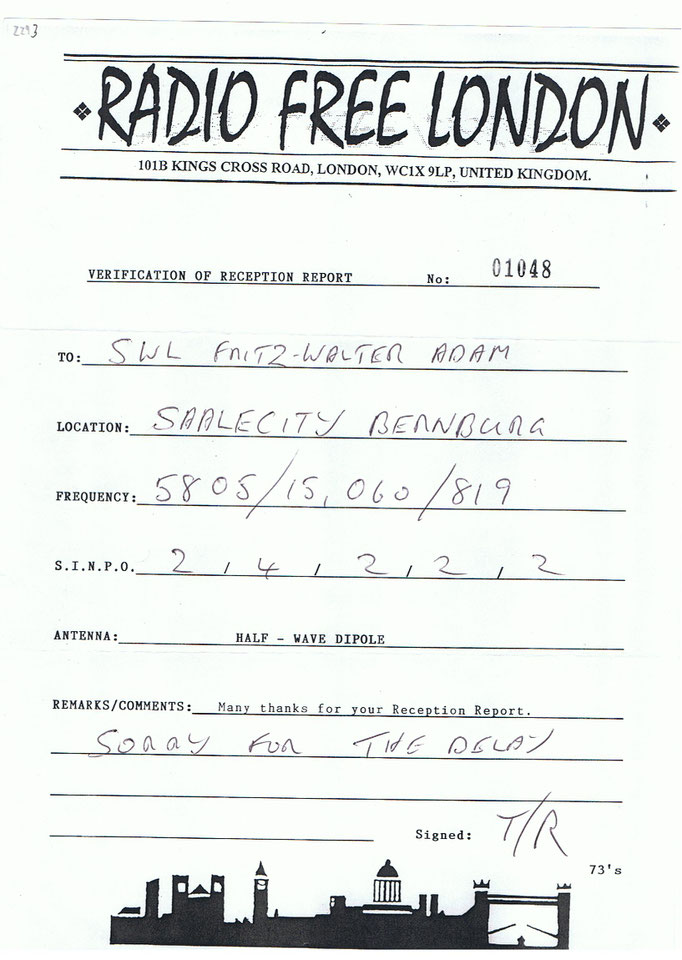 2293
RADIO FREE LONDON
101B KINGS CROSS ROAD, LONDON, WC1X 9LP, UNITED KINGDOM.
VERIFICATION OF RECEPTION REPORT No: 01048
TO: SWL FRITZ-WALTER ADAM
LOCATION: SAALECITY BERNBURG
FREQUENCY: 5805/15,060/819
S.I.N.P.O. 2, 4, 2, 2, 2
ANTENNA: HALF - WAVE DIPOLE
REMARKS/COMMENTS: Many thanks for your Reception Report.
SORRY FOR THE DELAY
Signed: T/R
73's